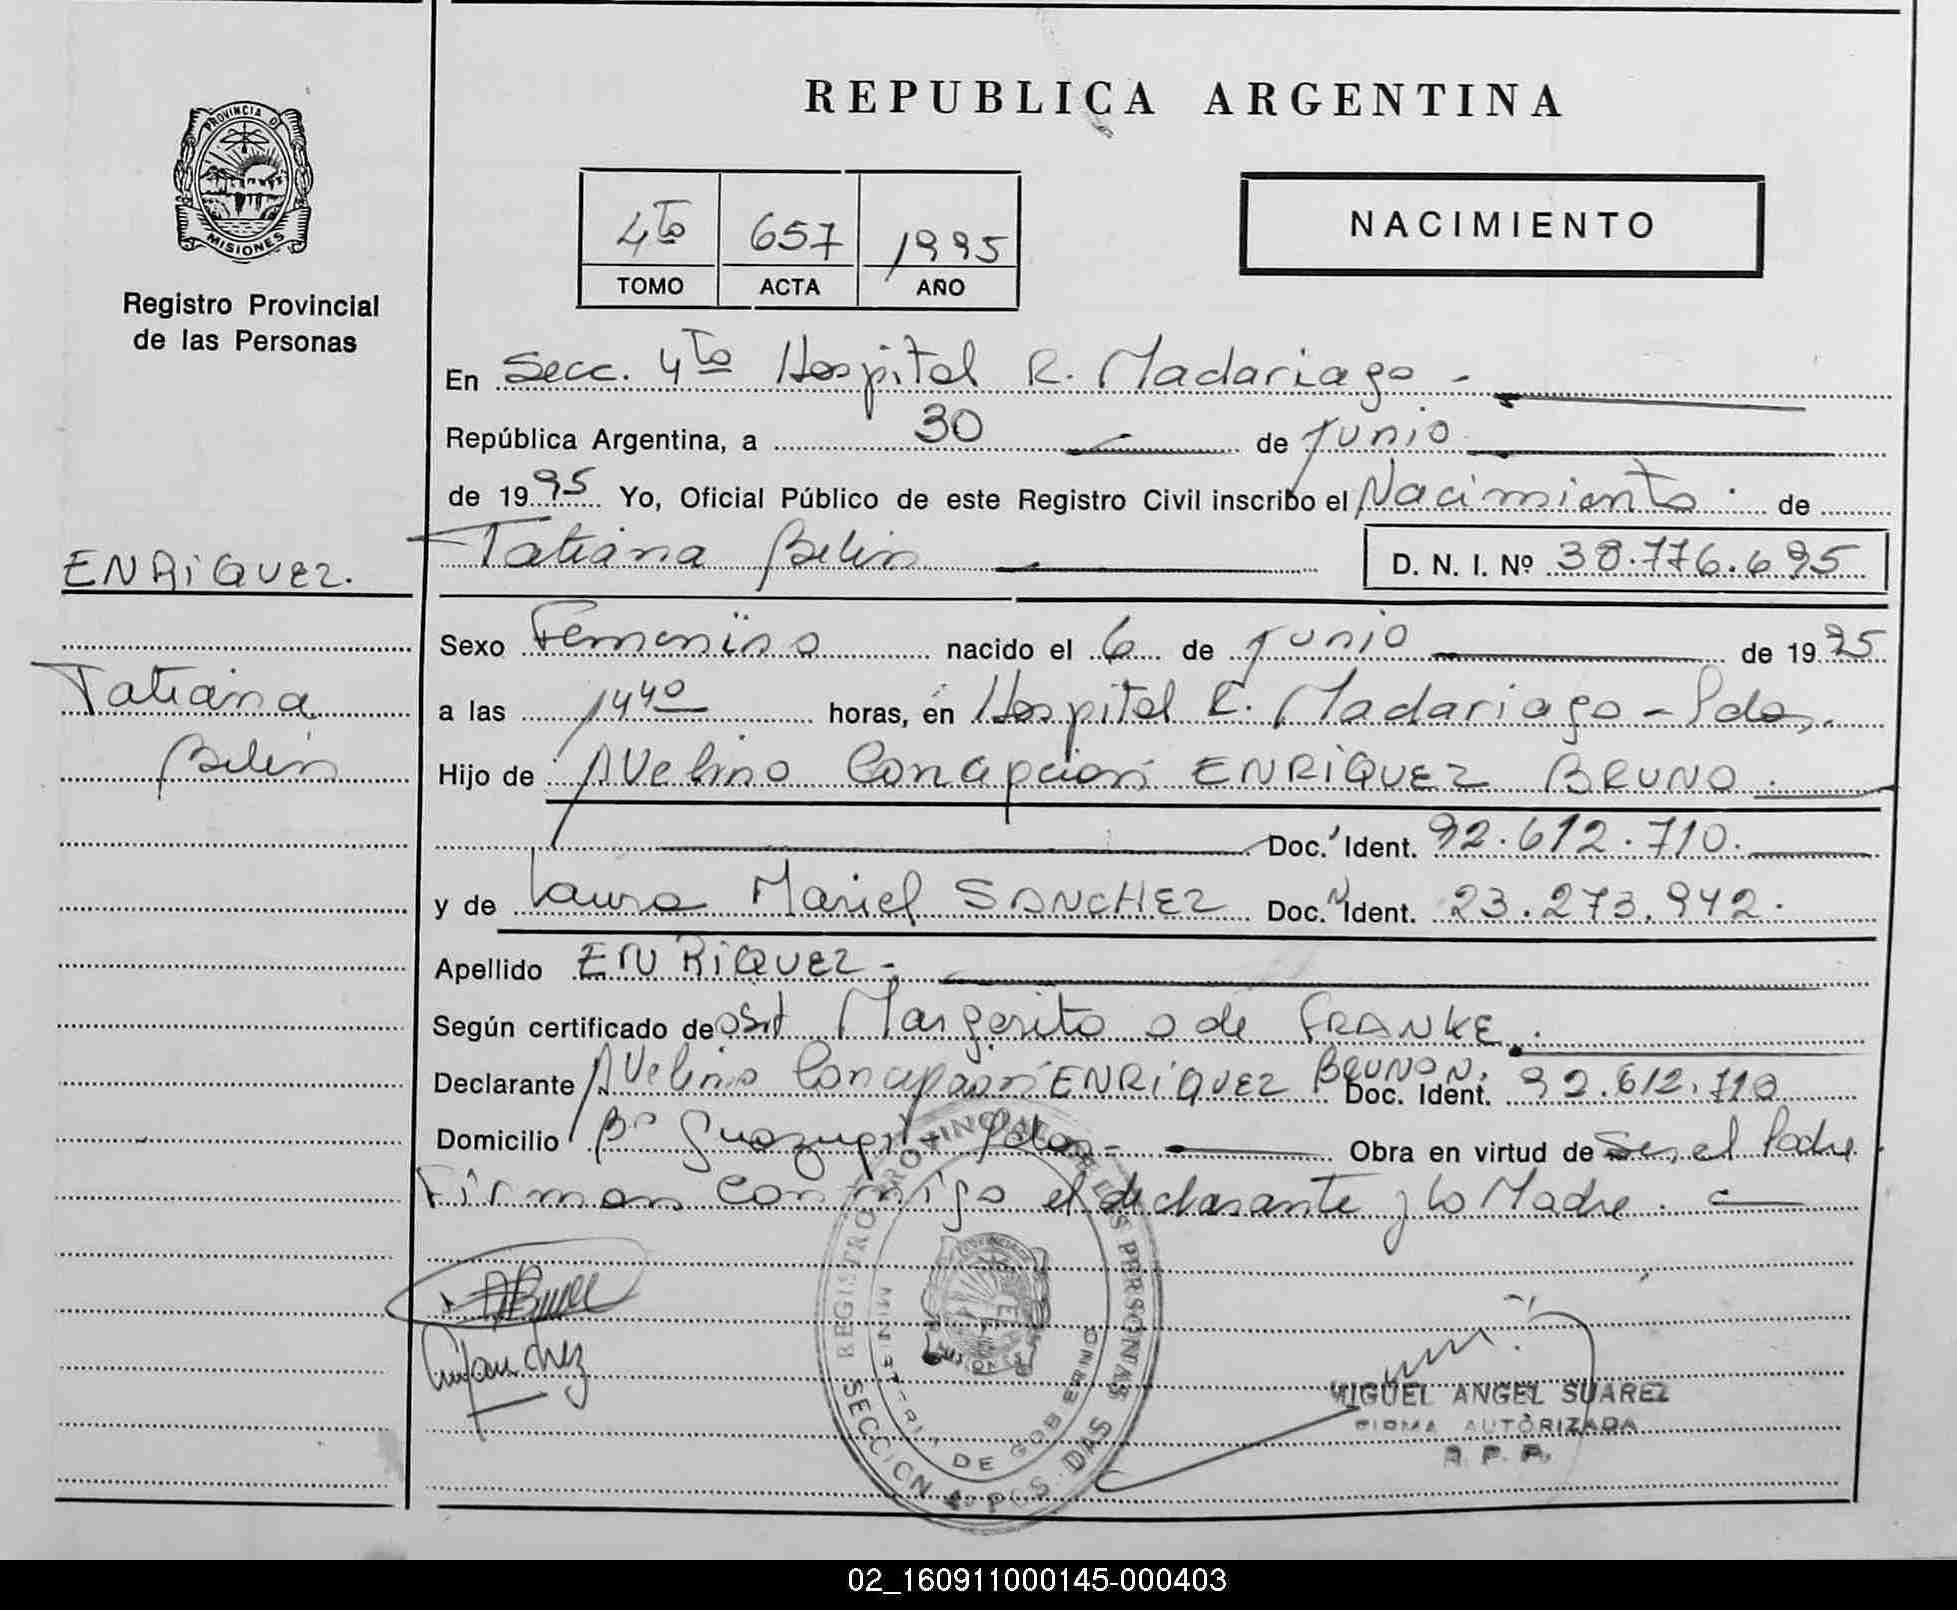 REPUBLICA ARGENTINA
PROVINCIA DE
MISIONES
Registro Provincial
de las Personas
4to 657 1995
TOMO ACTA AÑO
NACIMIENTO
En Secc. 4to Hospital R. Madariaga -
República Argentina, a 30 de Junio
de 1995 Yo, Oficial Público de este Registro Civil inscribo el Nacimiento de
Tatiana Belén D. N. I. Nº 38.776.695
ENRIQUEZ.
Tatiana
Belén
Sexo Femenino nacido el 6 de Junio de 1995
a las 1440 horas, en Hospital R. Madariaga - Pdas.
Hijo de Avelino Concepción ENRIQUEZ BRUNO
Doc. Ident. 92.612.710.
y de Laura Mariel SANCHEZ Doc. Ident. 23.273.942.
Apellido ENRIQUEZ -
Según certificado de Obst Margarita de FRANKE.
Declarante Avelino Concepción ENRIQUEZ BRUNO N. Doc. Ident. 92.612.710
Domicilio Bº Pdas - Obra en virtud de Ser el Padre
Firman conmigo el declarante y la Madre.
REGISTRO PROVINCIAL DE LAS PERSONAS
MINISTERIO DE GOBIERNO
SECCION 4a POSADAS
MIGUEL ANGEL SUAREZ
FIRMA AUTORIZADA
R. P. P.
02_160911000145-000403